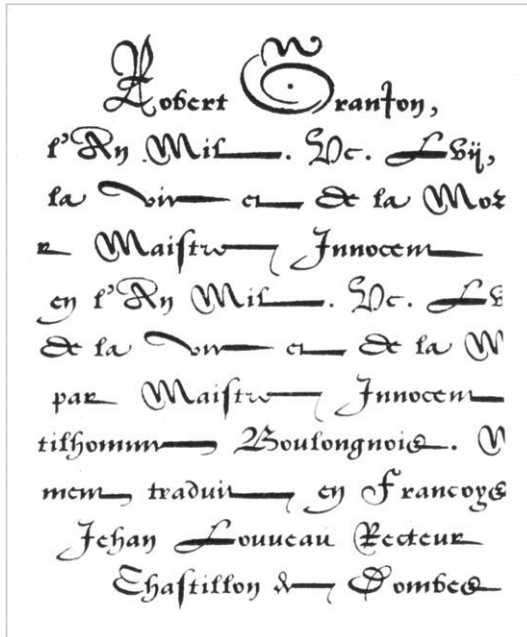 Robert Granjon,
l'An Mil. Vc. Lvij,
la vie et de la Mor
r Maistre Innocent
en l'An Mil. Vc. Lv
de la vie et de la M
par Maistre Innocent
tilhomme Boulongnois. N
ment traduit en Francoys
Jehan Louveau Recteur
Chastillon de Dombes